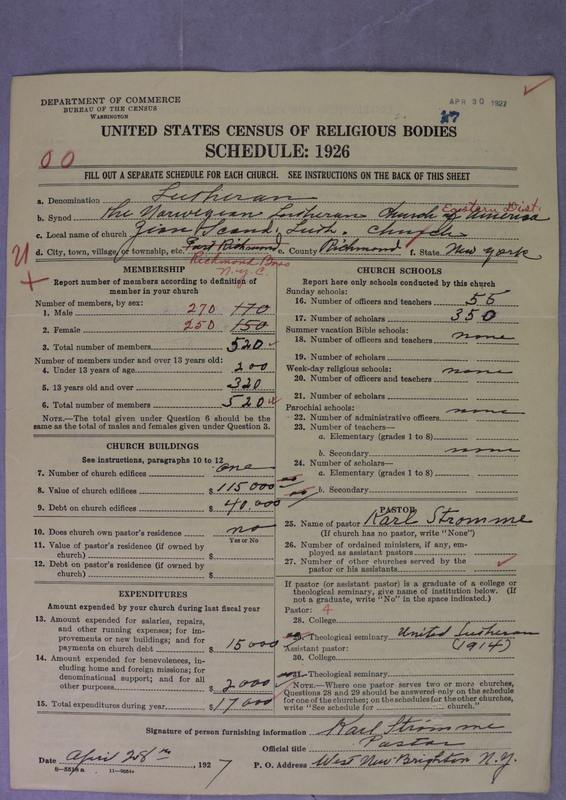 DEPARTMENT OF COMMERCE
BUREAU OF THE CENSUS
WASHINGTON
APR 30 1927
UNITED STATES CENSUS OF RELIGIOUS BODIES
SCHEDULE: 1926
00
FILL OUT A SEPARATE SCHEDULE FOR EACH CHURCH. SEE INSTRUCTIONS ON THE BACK OF THIS SHEET
a. Denomination Lutheran
Eastern Dist.
b. Synod The Norwegian Lutheran Church of America
c. Local name of church Zion Scand. Luth. Church
d. City, town, village, or township, etc. Port Richmond e. County Richmond f. State New York
Richmond Boro
N.Y.C.
MEMBERSHIP
Report number of members according to definition of
member in your church
Number of members, by sex:
1. Male 270 170
2. Female 250 150
3. Total number of members 520
Number of members under and over 13 years old:
4. Under 13 years of age 200
5. 13 years old and over 320
6. Total number of members 520
NOTE.—The total given under Question 6 should be the
same as the total of males and females given under Question 3.
CHURCH BUILDINGS
See instructions, paragraphs 10 to 12
7. Number of church edifices one
8. Value of church edifices $115000
9. Debt on church edifices $40.000
10. Does church own pastor's residence? no
Yes or No
11. Value of pastor's residence (if owned by
church) $
12. Debt on pastor's residence (if owned by
church) $
EXPENDITURES
Amount expended by your church during last fiscal year
13. Amount expended for salaries, repairs,
and other running expenses; for im-
provements or new buildings; and for
payments on church debt $15000
14. Amount expended for benevolences, in-
cluding home and foreign missions; for
denominational support; and for all
other purposes $2000
15. Total expenditures during year $17000
CHURCH SCHOOLS
Report here only schools conducted by this church
Sunday schools:
16. Number of officers and teachers 56
17. Number of scholars 350
Summer vacation Bible schools:
18. Number of officers and teachers none
19. Number of scholars
Week-day religious schools:
20. Number of officers and teachers none
21. Number of scholars
Parochial schools:
22. Number of administrative officers none
23. Number of teachers—
a. Elementary (grades 1 to 8)
b. Secondary none
24. Number of scholars—
a. Elementary (grades 1 to 8)
b. Secondary
PASTOR
25. Name of pastor Karl Stromme
(If church has no pastor, write "None")
26. Number of ordained ministers, if any, em-
ployed as assistant pastors
27. Number of other churches served by the
pastor or his assistants
If pastor (or assistant pastor) is a graduate of a college or
theological seminary, give name of institution below. (If
not a graduate, write "No" in the space indicated.)
Pastor: 4
28. College
29. Theological seminary United Lutheran
(1914)
Assistant pastor:
30. College
31. Theological seminary
NOTE.—Where one pastor serves two or more churches,
Questions 28 and 29 should be answered only on the schedule
for one of the churches; on the schedules for the other churches,
write "See schedule for church."
Signature of person furnishing information Karl Stromme
Official title Pastor
Date April 28th, 1927 P. O. Address West New Brighton N.Y.